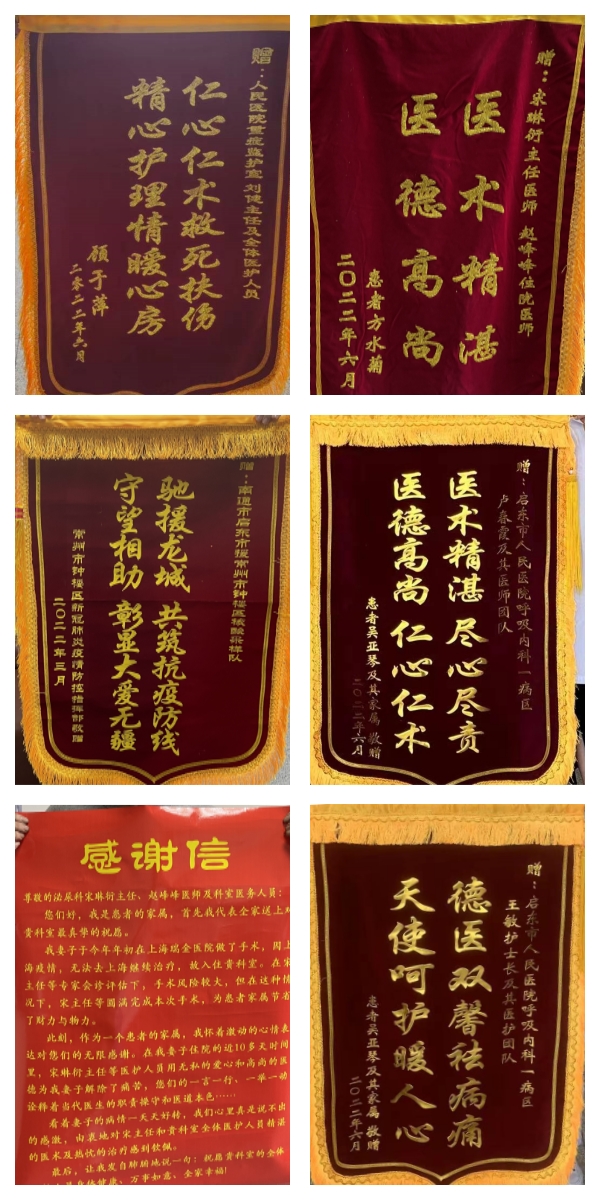 赠：人民医院重症监护室 刘健主任及全体医护人员
仁心仁术救死扶伤
精心护理情暖心房
顾于萍
二零二二年六月
赠：宋琳衍主任医师 赵峰峰住院医师
医术精湛
医德高尚
患者方水菊
二〇二二年六月
赠：南通市启东市援常州市钟楼区核酸采样队
驰援龙城 共筑抗疫防线
守望相助 彰显大爱无疆
常州市钟楼区新冠肺炎疫情防控指挥部敬赠
二〇二二年三月
赠：启东市人民医院呼吸内科一病区
卢春霞及其医师团队
医术精湛 尽心尽责
医德高尚 仁心仁术
患者吴亚琴及其家属 敬赠
二〇二二年六月
感谢信
尊敬的泌尿科宋琳衍主任、赵峰峰医师及科室医务人员：
您们好，我是患者的家属，首先我代表全家送上对
贵科室最真挚的祝愿。
我妻子于今年年初在上海瑞金医院做了手术，因上
海疫情，无法去上海继续治疗，故入住贵科室。在宋
主任等专家会诊评估下，手术风险较大，但在这种情
况下，宋主任等圆满完成本次手术，为患者家属节省
了财力与物力。
此刻，作为一个患者的家属，我怀着激动的心情表
达对您们的无限感谢。在我妻子住院的近10多天时间
里，宋琳衍主任等医护人员用无私的爱心和高尚的医
德为我妻子解除了痛苦，您们的一言一行、一举一动
诠释着当代医生的职责操守和医道本色……
看着妻子的病情一天天好转，我们心里真是说不出
的感激，由衷地对宋主任和贵科室全体医护人员精湛
的医术及热忱的治疗感到钦佩。
最后，让我发自肺腑地说一句：祝愿贵科室的全体
身体健康、万事如意、全家幸福！
赠：启东市人民医院呼吸内科一病区
王敏护士长及其医护团队
德医双馨祛病痛
天使呵护暖人心
患者吴亚琴及其家属 敬赠
二〇二二年六月